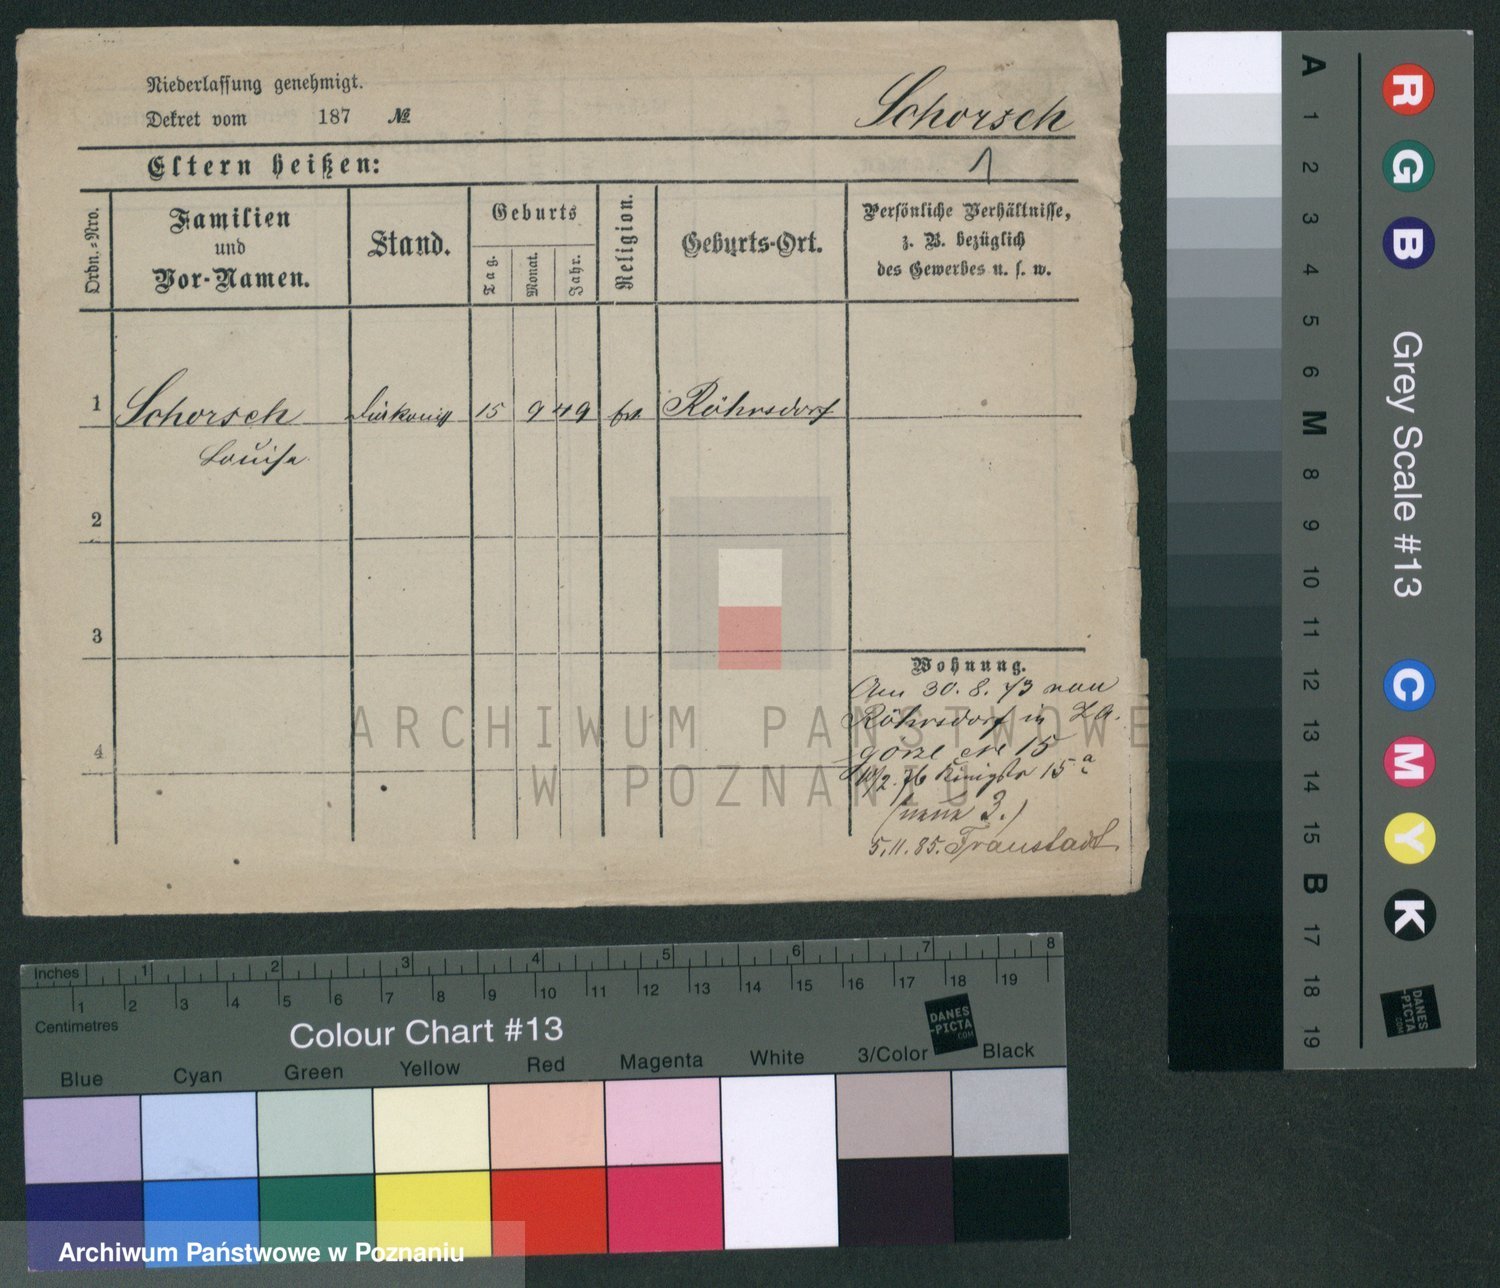 Niederlassung genehmigt.
Dekret vom 187 №
Schorsch
1
Eltern heißen:
Ordn.-Nro.
Familien
und
Vor-Namen.
Stand.
Geburts
Tag.
Monat.
Jahr.
Religion.
Geburts-Ort.
Persönliche Verhältnisse,
z. B. bezüglich
des Gewerbes u. s. w.
1 Schorsch 15 9 49 Röhrsdorf
Louise
2
3
4
Wohnung.
Am 30. 8. 73 von
Röhrsdorf in Za-
górze № 15
76 Königstr 15 a
3.)
5.11.85. Fraustadt
ARCHIWUM PAŃSTWOWE
W POZNANIU
Inches 1 2 3 4 5 6 7 8
1 2 3 4 5 6 7 8 9 10 11 12 13 14 15 16 17 18 19
Centimetres
Colour Chart #13
DANES
-PICTA
.COM
Blue Cyan Green Yellow Red Magenta White 3/Color Black
A 1 2 3 4 5 6 M 8 9 10 11 12 13 14 15 B 17 18 19
R G B
Grey Scale #13
C M Y K
DANES
-PICTA
.COM
Archiwum Państwowe w Poznaniu